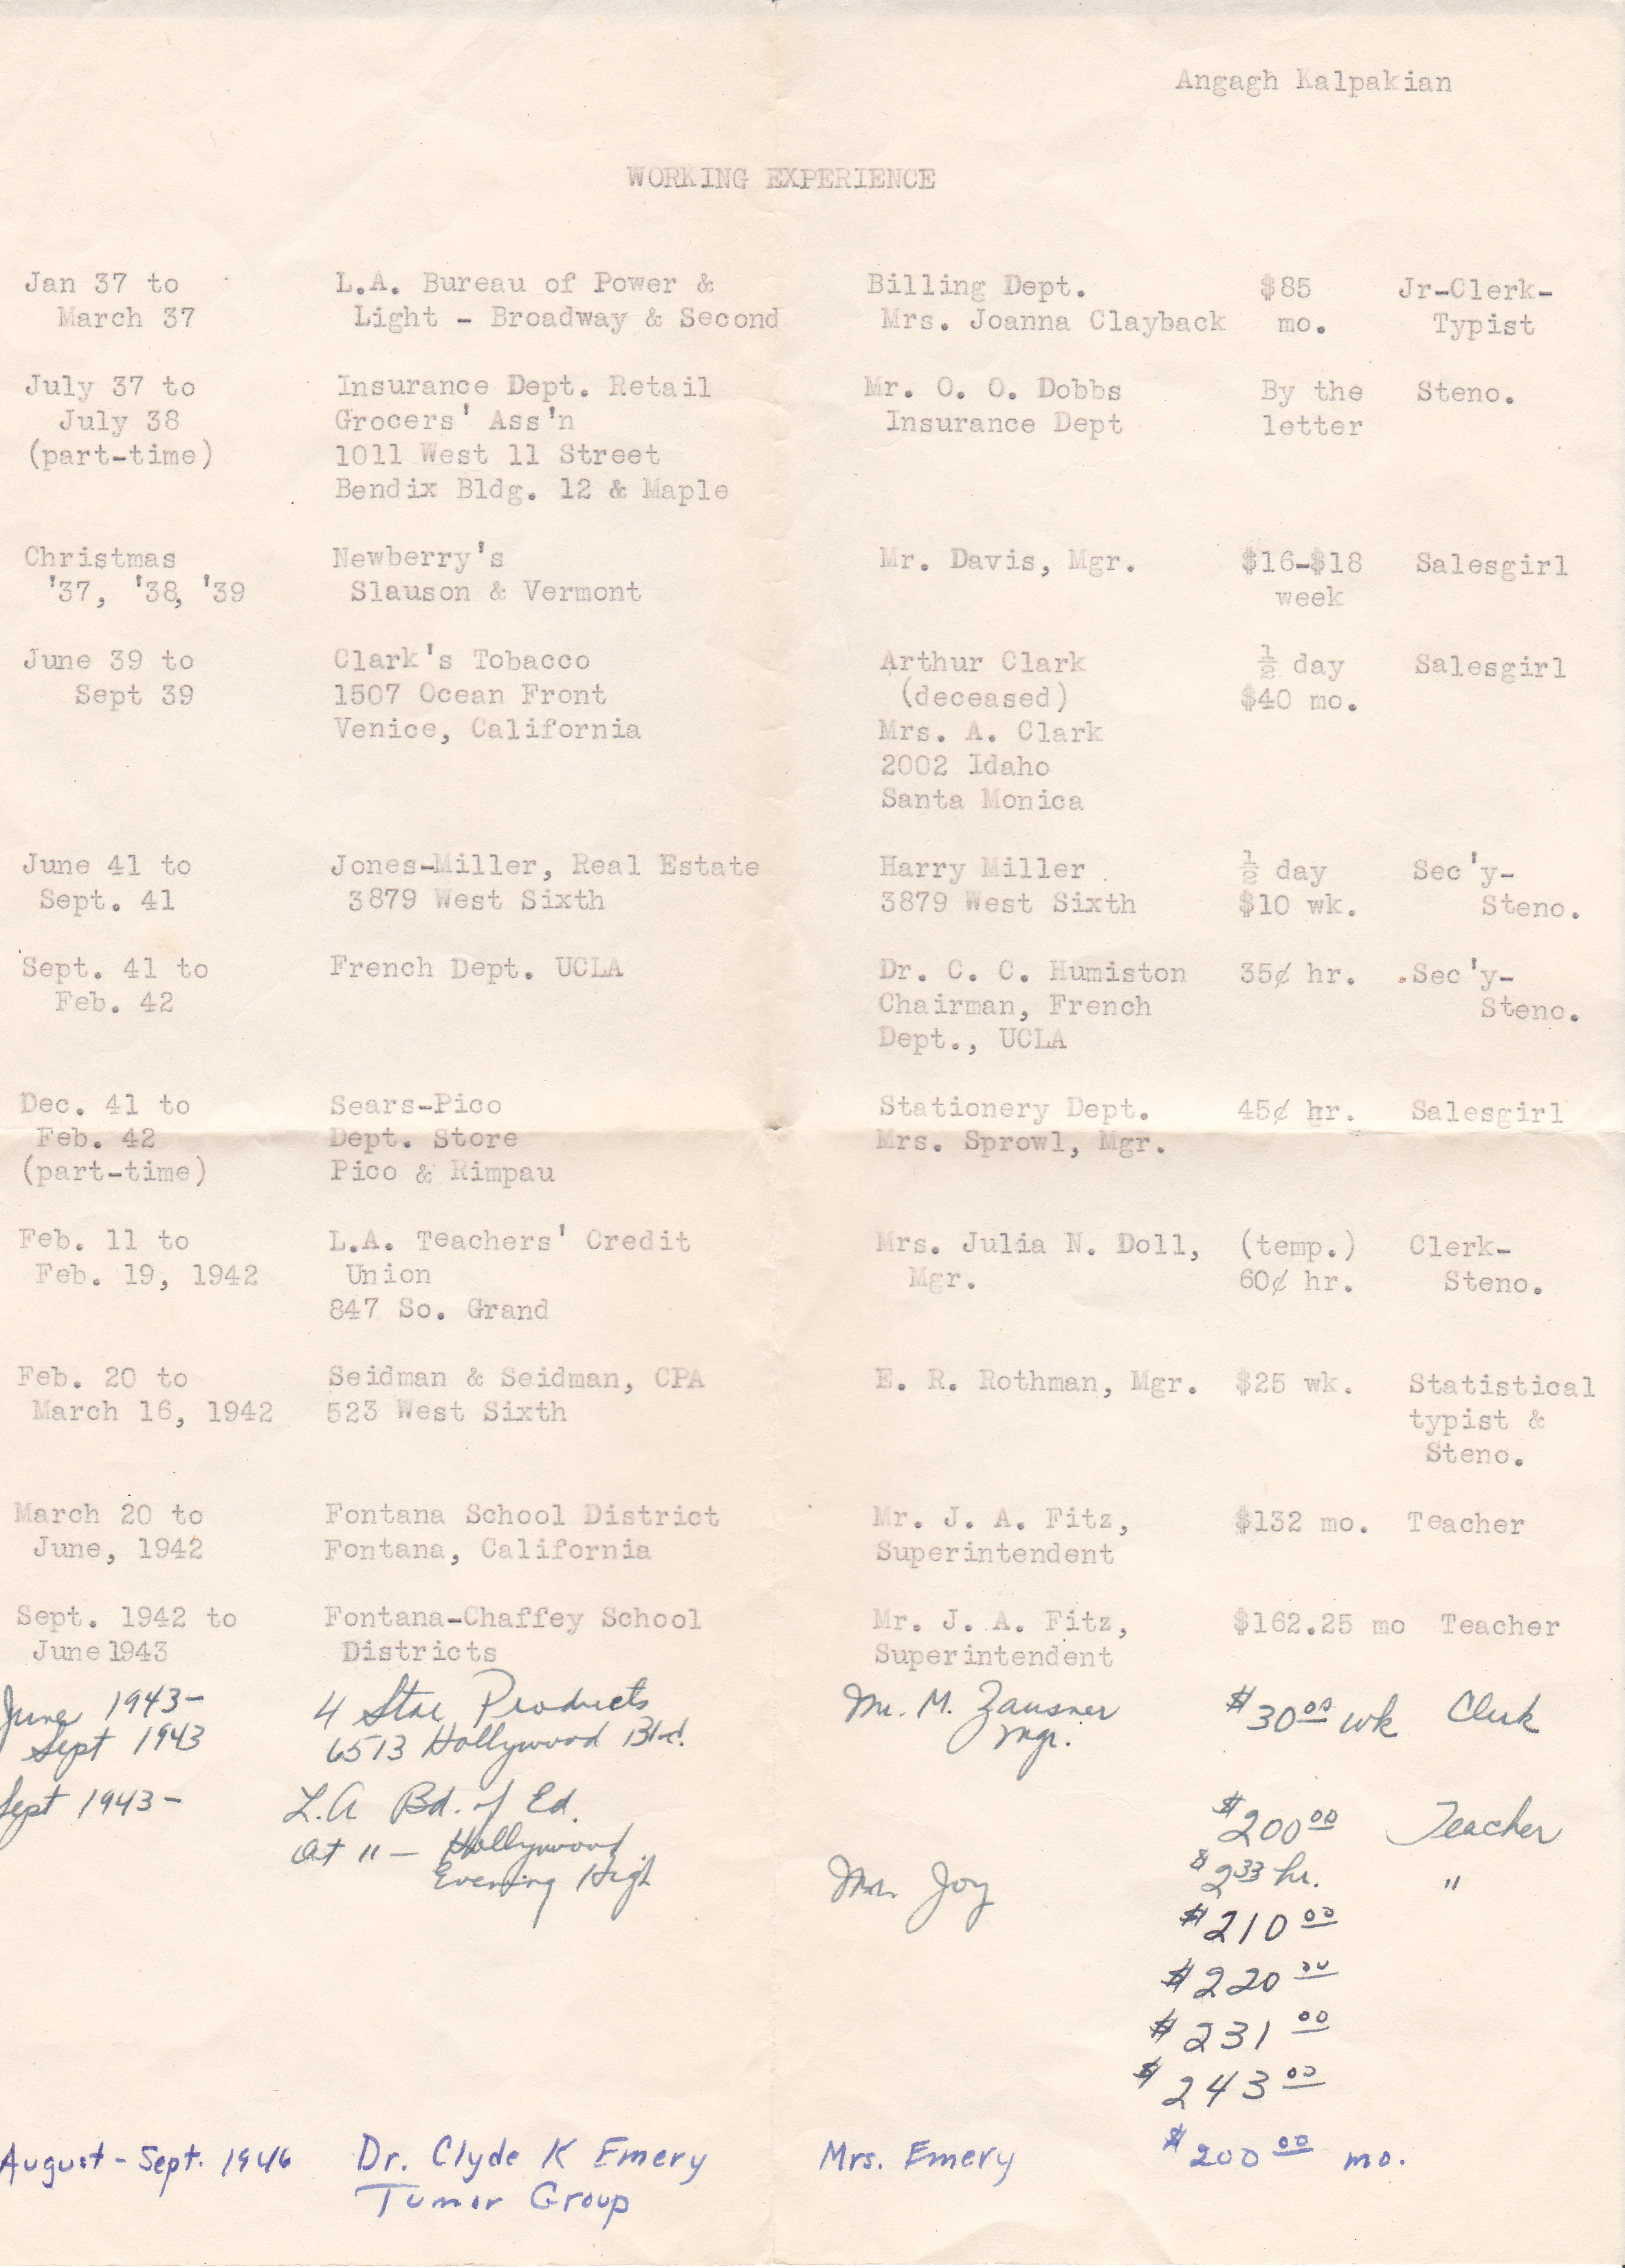 Angagh Kalpakian
WORKING EXPERIENCE
Jan 37 to L.A. Bureau of Power & Billing Dept. $85 Jr-Clerk-
March 37 Light - Broadway & Second Mrs. Joanna Clayback mo. Typist
July 37 to Insurance Dept. Retail Mr. O. O. Dobbs By the Steno.
July 38 Grocers' Ass'n Insurance Dept letter
(part-time) 1011 West 11 Street
Bendix Bldg. 12 & Maple
Christmas Newberry's Mr. Davis, Mgr. $16-$18 Salesgirl
'37, '38, '39 Slauson & Vermont week
June 39 to Clark's Tobacco Arthur Clark ½ day Salesgirl
Sept 39 1507 Ocean Front (deceased) $40 mo.
Venice, California Mrs. A. Clark
2002 Idaho
Santa Monica
June 41 to Jones-Miller, Real Estate Harry Miller ½ day Sec'y-
Sept. 41 3879 West Sixth 3879 West Sixth $10 wk. Steno.
Sept. 41 to French Dept. UCLA Dr. C. C. Humiston 35¢ hr. Sec'y-
Feb. 42 Chairman, French Steno.
Dept., UCLA
Dec. 41 to Sears-Pico Stationery Dept. 45¢ hr. Salesgirl
Feb. 42 Dept. Store Mrs. Sprowl, Mgr.
(part-time) Pico & Rimpau
Feb. 11 to L.A. Teachers' Credit Mrs. Julia N. Doll, (temp.) Clerk-
Feb. 19, 1942 Union Mgr. 60¢ hr. Steno.
847 So. Grand
Feb. 20 to Seidman & Seidman, CPA E. R. Rothman, Mgr. $25 wk. Statistical
March 16, 1942 523 West Sixth typist &
Steno.
March 20 to Fontana School District Mr. J. A. Fitz, $132 mo. Teacher
June, 1942 Fontana, California Superintendent
Sept. 1942 to Fontana-Chaffey School Mr. J. A. Fitz, $162.25 mo Teacher
June 1943 Districts Superintendent
June 1943- 4 Star Products Mr. M. Zausner $30.00 wk Clerk
Sept 1943 6513 Hollywood Blvd. Mgr.
Sept 1943- L.A Bd. of Ed. $200.00 Teacher
At 11 — Hollywood $2.33 hr. "
Evening High Mr. Joy
$210.00
$220.00
$231.00
$243.00
August - Sept. 1946 Dr. Clyde K Emery Mrs. Emery $200.00 mo.
Tumor Group